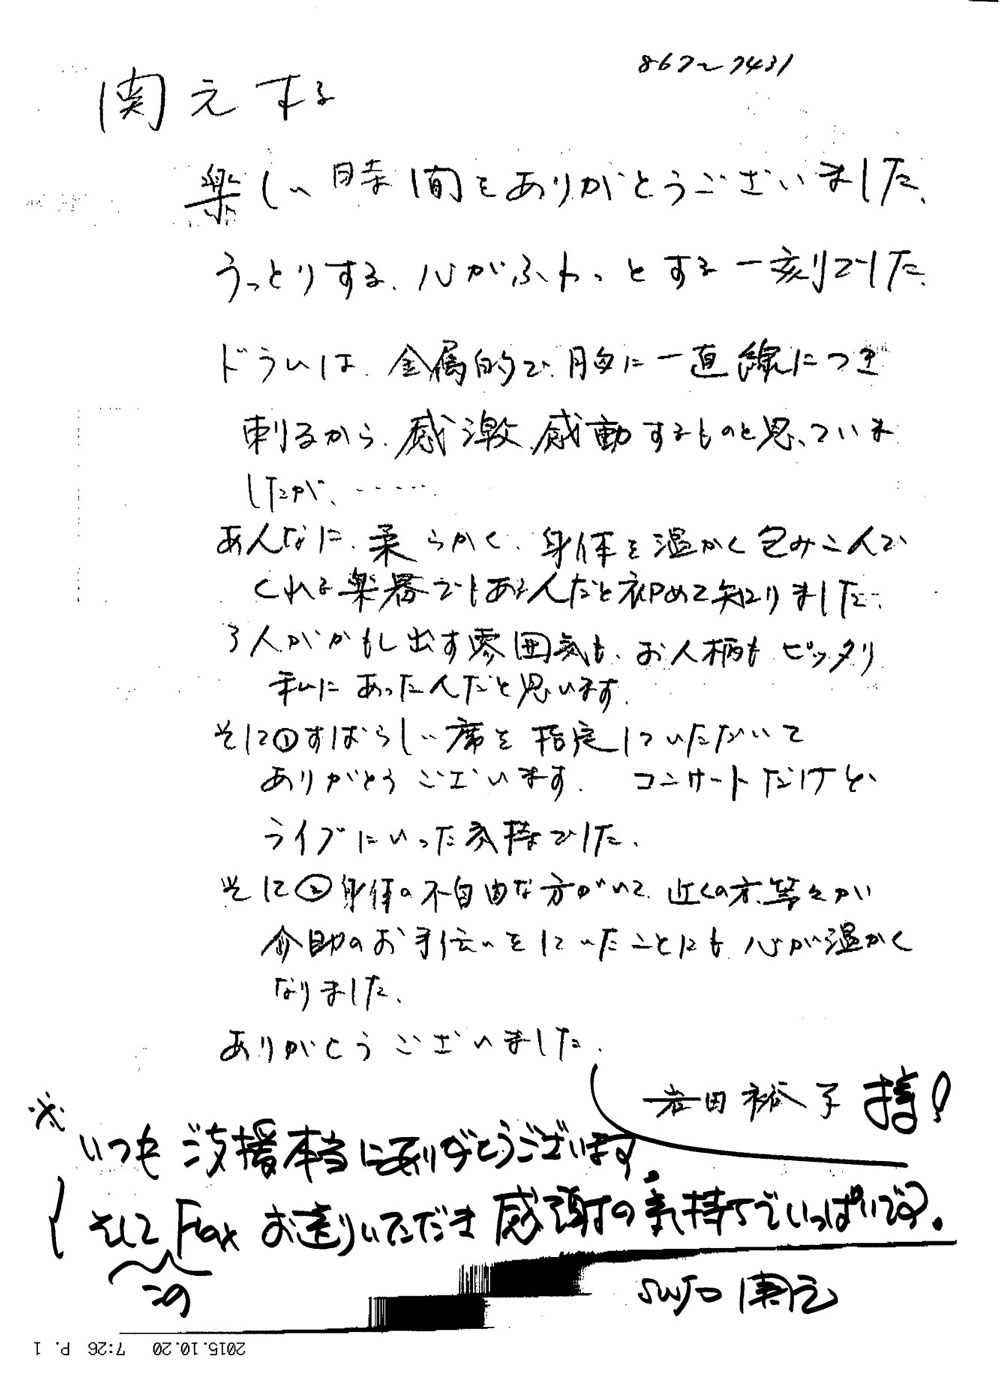 867-7431
関元する
楽しい時間をありがとうございました、
うっとりする、心がふわっとする一刻でした、
ドラムは、金属的で、胸に一直線につき
刺るから、感激、感動するものと思っていま
したが、……
あんなに、柔らかく、身体を温かく包みこんで
くれる楽器でもあるんだと初めて知りました、
3人がかもし出す雰囲気も、お人柄もピッタリ
私にあったんだと思います。
そして①すばらしい席を指定していただいて
ありがとうございます。コンサートだけど
ライブにいった気持でした、
そして②身体の不自由な方がいて、近くの方、等々が
介助のお手伝いをしていたことにも、心が温かく
なりました、
ありがとうございました、
岩田裕子様!
※いつもご支援本当にありがとうございます。
そしてFax お送りいただき感謝の気持ちでいっぱいです。
この
SWJO 関元
2015.10.20 7:26 P. 1